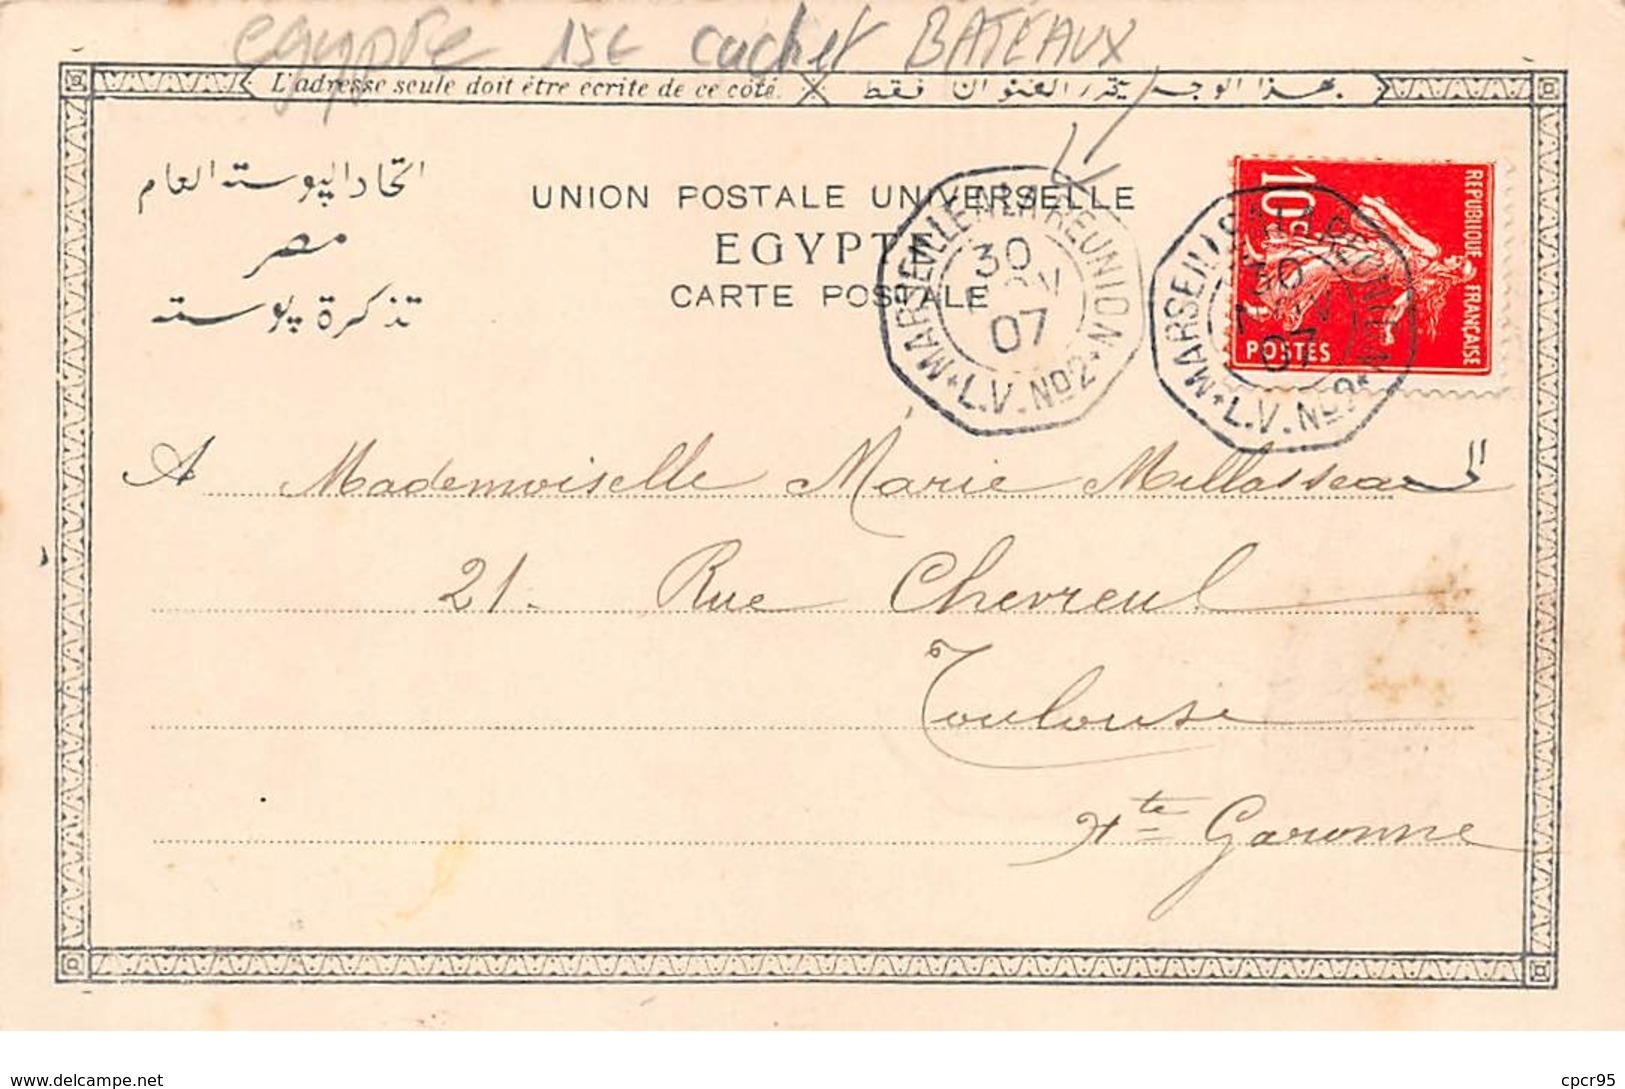 egypte 15c cachet BATEAUX
L'adresse seule doit être écrite de ce côté.
بهذا الوجه يتحرر العنوان فقط
اتحاد البوسته العام
مصر
تذكرة بوسته
UNION POSTALE UNIVERSELLE
EGYPTE
CARTE POSTALE
MARSEILLE A LA REUNION
30
NOV
07
* L.V. No2 *
MARSEILLE A LA REUNION
30
NOV
07
* L.V. No2 *
REPUBLIQUE FRANÇAISE
10c
POSTES
A Mademoiselle Marie Millasseau
21. Rue Chevreul
Toulouse
Hte Garonne
delcampe.net
cpcr95